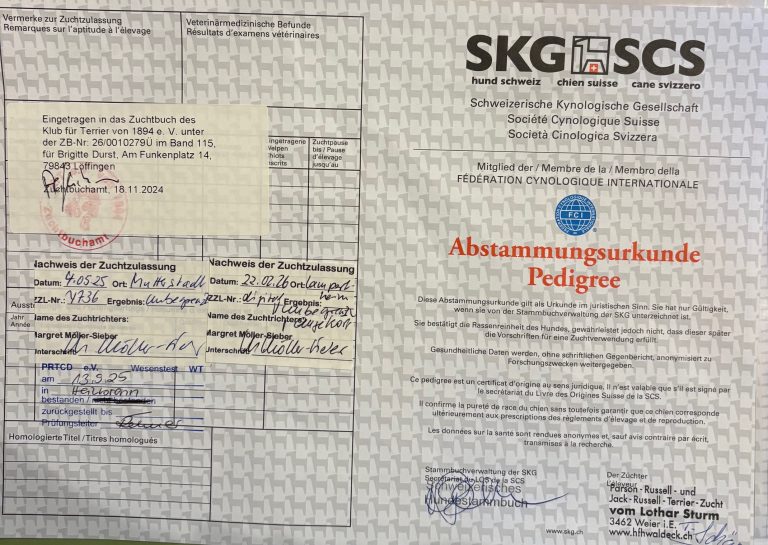 Vermerke zur Zuchtzulassung
Remarques sur l'aptitude à l'élevage
Veterinärmedizinische Befunde
Résultats d'examens vétérinaires
Eingetragen in das Zuchtbuch des
Klub für Terrier von 1894 e. V. unter
der ZB-Nr. 26/0010279Ü im Band 115,
für Brigitte Durst, Am Funkenplatz 14,
79843 Löffingen
Zuchtbuchamt, 18.11.2024
Zuchtbuchamt
Zuchtpause
bis / Pause
d'élevage
jusqu'au
Nachweis der Zuchtzulassung
Datum: 4.05.25 Ort: Mutterstadt
ZZL-Nr.: V736 Ergebnis:
Name des Zuchtrichters:
Margret Möller-Sieber
Unterschrift
Nachweis der Zuchtzulassung
Datum: 22.02.26 Ort:
ZZL-Nr.: Ergebnis:
Name des Zuchtrichters:
Margret Möller-Sieber
Unterschrift
Jahr
Année
PRTCD e.V. Wesenstest WT
am 13.9.25
in Heilbronn
bestanden / nicht bestanden
zurückgestellt bis
Prüfungsleiter
Homologierte Titel / Titres homologués
SKG SCS
hund schweiz chien suisse cane svizzero
Schweizerische Kynologische Gesellschaft
Société Cynologique Suisse
Società Cinologica Svizzera
Mitglied der / Membre de la / Membro della
FÉDÉRATION CYNOLOGIQUE INTERNATIONALE
FCI
Abstammungsurkunde
Pedigree
Diese Abstammungsurkunde gilt als Urkunde im juristischen Sinn. Sie hat nur Gültigkeit,
wenn sie von der Stammbuchverwaltung der SKG unterzeichnet ist.
Sie bestätigt die Rassenreinheit des Hundes, gewährleistet jedoch nicht, dass dieser später
die Vorschriften für eine Zuchtverwendung erfüllt.
Gesundheitliche Daten werden, ohne schriftlichen Gegenbericht, anonymisiert zu
Forschungszwecken weitergegeben.
Ce pedigree est un certificat d'origine au sens juridique. Il n'est valable que s'il est signé par
le secrétariat du Livre des Origines Suisse de la SCS.
Il confirme la pureté de race du chien sans toutefois garantir que ce chien corresponde
ultérieurement aux prescriptions des règlements d'élevage et de reproduction.
Les données sur la santé sont rendues anonymes et, sauf avis contraire par écrit,
transmises à la recherche.
Stammbuchverwaltung der SKG
Secrétariat du LOS de la SCS
Schweizerisches
Hundestammbuch
www.skg.ch
Der Züchter
L'éleveur
Parson-Russell- und
Jack-Russell-Terrier-Zucht
vom Lothar Sturm
3462 Weier i.E.
www.hfhwaldeck.ch